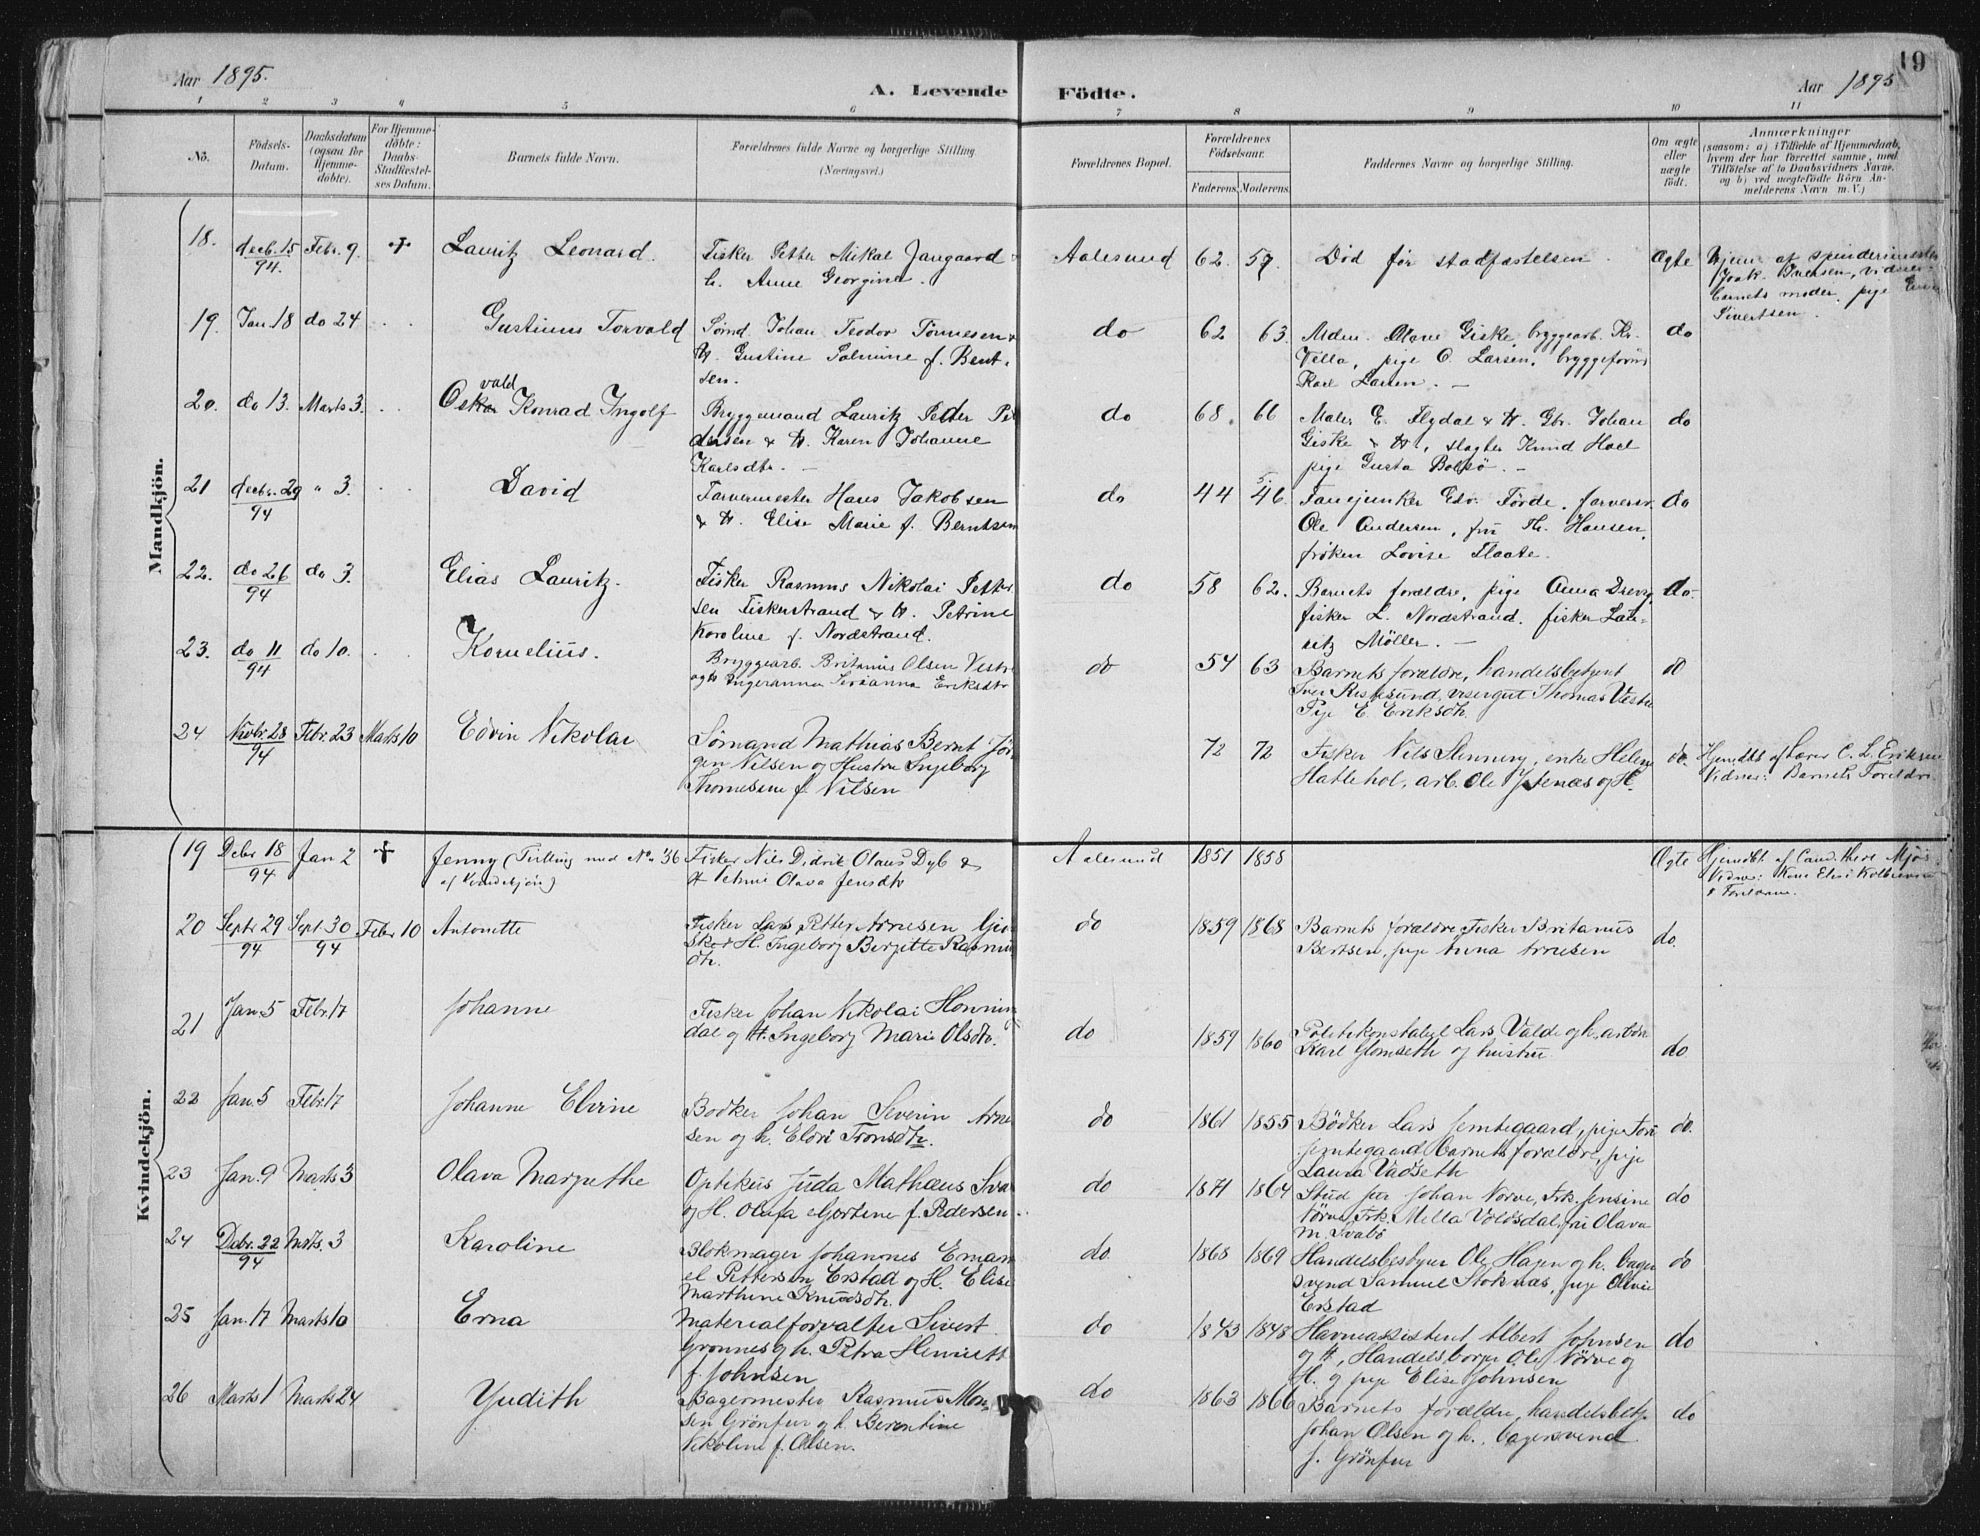 19
Aar 1895.
A. Levende Födte.
Aar 1895
1 2 3 4 5 6 7 8 9 10 11
No.
Födsels-Datum.
Daabsdatum (ogsaa for Hjemme-döbte).
For Hjemme-döbte: Daabs-Stadfæstel-ses Datum.
Barnets fulde Navn.
Forældrenes fulde Navne og borgerlige Stilling (Næringsvei.)
Forældrenes Bopæl.
Forældrenes Födselsaar.
Faderens. Moderens.
Faddernes Navne og borgerlige Stilling.
Om ægte eller uægte födt.
Anmærkninger
(saasom: a) i Tilfælde af Hjemmedaab,
hvem der har forrettet samme, med
Tilföielse af to Daabsvidners Navne.
og b) ved uægtefödte Börn An-
melderens Navn m. V.)
Mandkjön.
18. decb. 15 94. Febr. 9. + Lauritz Leonard. Fisker Petter Mikal Jangaard
h. Anne Georgine.
Aalesund 62. 57 Död för stadfæstelsen. Ægte Hjem. af spinderimester
Joak. Iversen, vidner:
barnets moder, pige
Sivertsen.
19. Jan. 18 do 24 Gustinus Torvald Sömd. Johan Teodor Tönnesen &
H. Gustine Palmine f. Bent-
sen.
do 62 63. Mdm. Olave Giske, bryggearb. Kr.
Villa, pige O. Larsen, bryggeform.
Karl Larsen. —
do
20. do 13. Marts 3. Oskar vald Konrad Ingolf Bryggemand Lauritz Peder Pe
dersen & H. Karen Johanne
Karlsdtr. —
do 68. 66 Maler E. Flydal & H. Gbr. Johan
Giske & H., slagter Knud Hoel
pige Gusta Bolsö. —
do
21 decbr. 29 94 " 3. David Farvermester Hans Jakobsen
& H. Elise Marie f. Berntsen
do 44 46. Fanejunker Edv. Förde, farversv.
Ole Andersen, fru Th. Hansen,
fröken Lovise Flaate.
do
22. do 26 94 do 3. Elias Lauritz. Fisker Rasmus Nikolai Petter
sen Fiskerstrand & H. Petrine
Karoline f. Nordstrand.
do 58 62. Barnets forældre, pige Anna Drevs,
fisker L. Nordstrand, fisker Lau-
ritz Möller. —
do
23. do 11 94 do 10. Kornelius. Bryggearb. Britanus Olsen Vestre
og H Ingeranna Serianna Eriksdtr
do 54 63 Barnets forældre, handelsbetjent
Iver Resfesund, visergut Thomas Vestre
Pige E. Eriksdtr.
do
24 Novbr. 28 94 Febr. 23 Marts 10 Edvin Nikolai Sömand Mathias Bernt Jör-
gen Nilsen og Hustru Ingeborg
Thomesine f. Nilsen
72 72 Fisker Nils Slenning, enke Helene
Hattehol, arb. Ole Ytrenæs og H.
do. Hjemdbt. af Lærer C. L. Eriksen
Vidner: Barnets Foreldre
Kvindekjön.
19 Debr 18 94 Jan 2 + Jenny (Tvilling med No. 36
af Kvindekjön)
Fisker Nils Didrik Olaus Dyb &
H Petrine Olava Jensdtr
Aalesund 1851 1858 Ægte Hjemdbt. af Cand. theol. Mjös.
Vidner: Kone Elisi
& Foreldrene.
20 Septr 29 94 Sept. 30 94 Febr 10 Antonette Fisker Lars Petter Arnesen Gjö
sker H. Ingeborg Bergitte Rasmus
dtr.
do 1859 1868 Barnets forældre Fisker Britanus
Bertsen, pige Anna Arnesen
do.
21 Jan. 5 Febr. 17 Johanne Fisker Johan Nikolai Honnin
dal og H. Ingeborg Marie Olsdtr.
do 1859 1860 Politikonstabel Lars Valde og h. arbm
Karl Glomseth og hustru
do
22 Jan. 5 Febr. 17 Johanne Elvine Bödker Johan Severin Arne
sen og h. Eldri Tronsdtr.
do 1861 1855 Bödker Lars Jemtegaard, pige Tori
Jemtegaard Barnets forældre, pige
Laura Vadseth
do.
23 Jan. 9 Marts 3 Olava Margrethe Optikus Juda Mathæus Sva
og H. Olufa Gjertine f. Pedersen.
do 1871 1864 Stud. jur. Johan Nörve, Frk. Jensine
Nörve, Frk. Milla Voldsdal, fru Olava
M. Svabö
do
24 Debr. 22 94 Mrts. 3 Karoline Blokmager Johannes Eman
el Pettersen Erstad og H. Elise
Marthine Knudsdtr.
do. 1868 1869 Handelsbestyrer Ole Hagen og h. Bager
svend Samuel Stoknæs, pige Olivie
Erstad
do
25 Jan. 17 Marts 10 Erna Materialforvalter Sivert
Grönnes og h. Petra Henriette
f. Johnsen
do 1843 1848 Havneassistent Albert Johnsen
og H, Handelsborger Ole Nörve og
H. og pige Elise Johnsen
do
26 Marts 1 Marts 24 Yudith Bagermester Rasmus Mon-
sen Grönfur og h. Berentine
Nikoline f. Olsen.
do 1863 1866 Barnets forældre, handelsbetj.
Johan Olsen og h., bagersvend
J. Grönfur
do